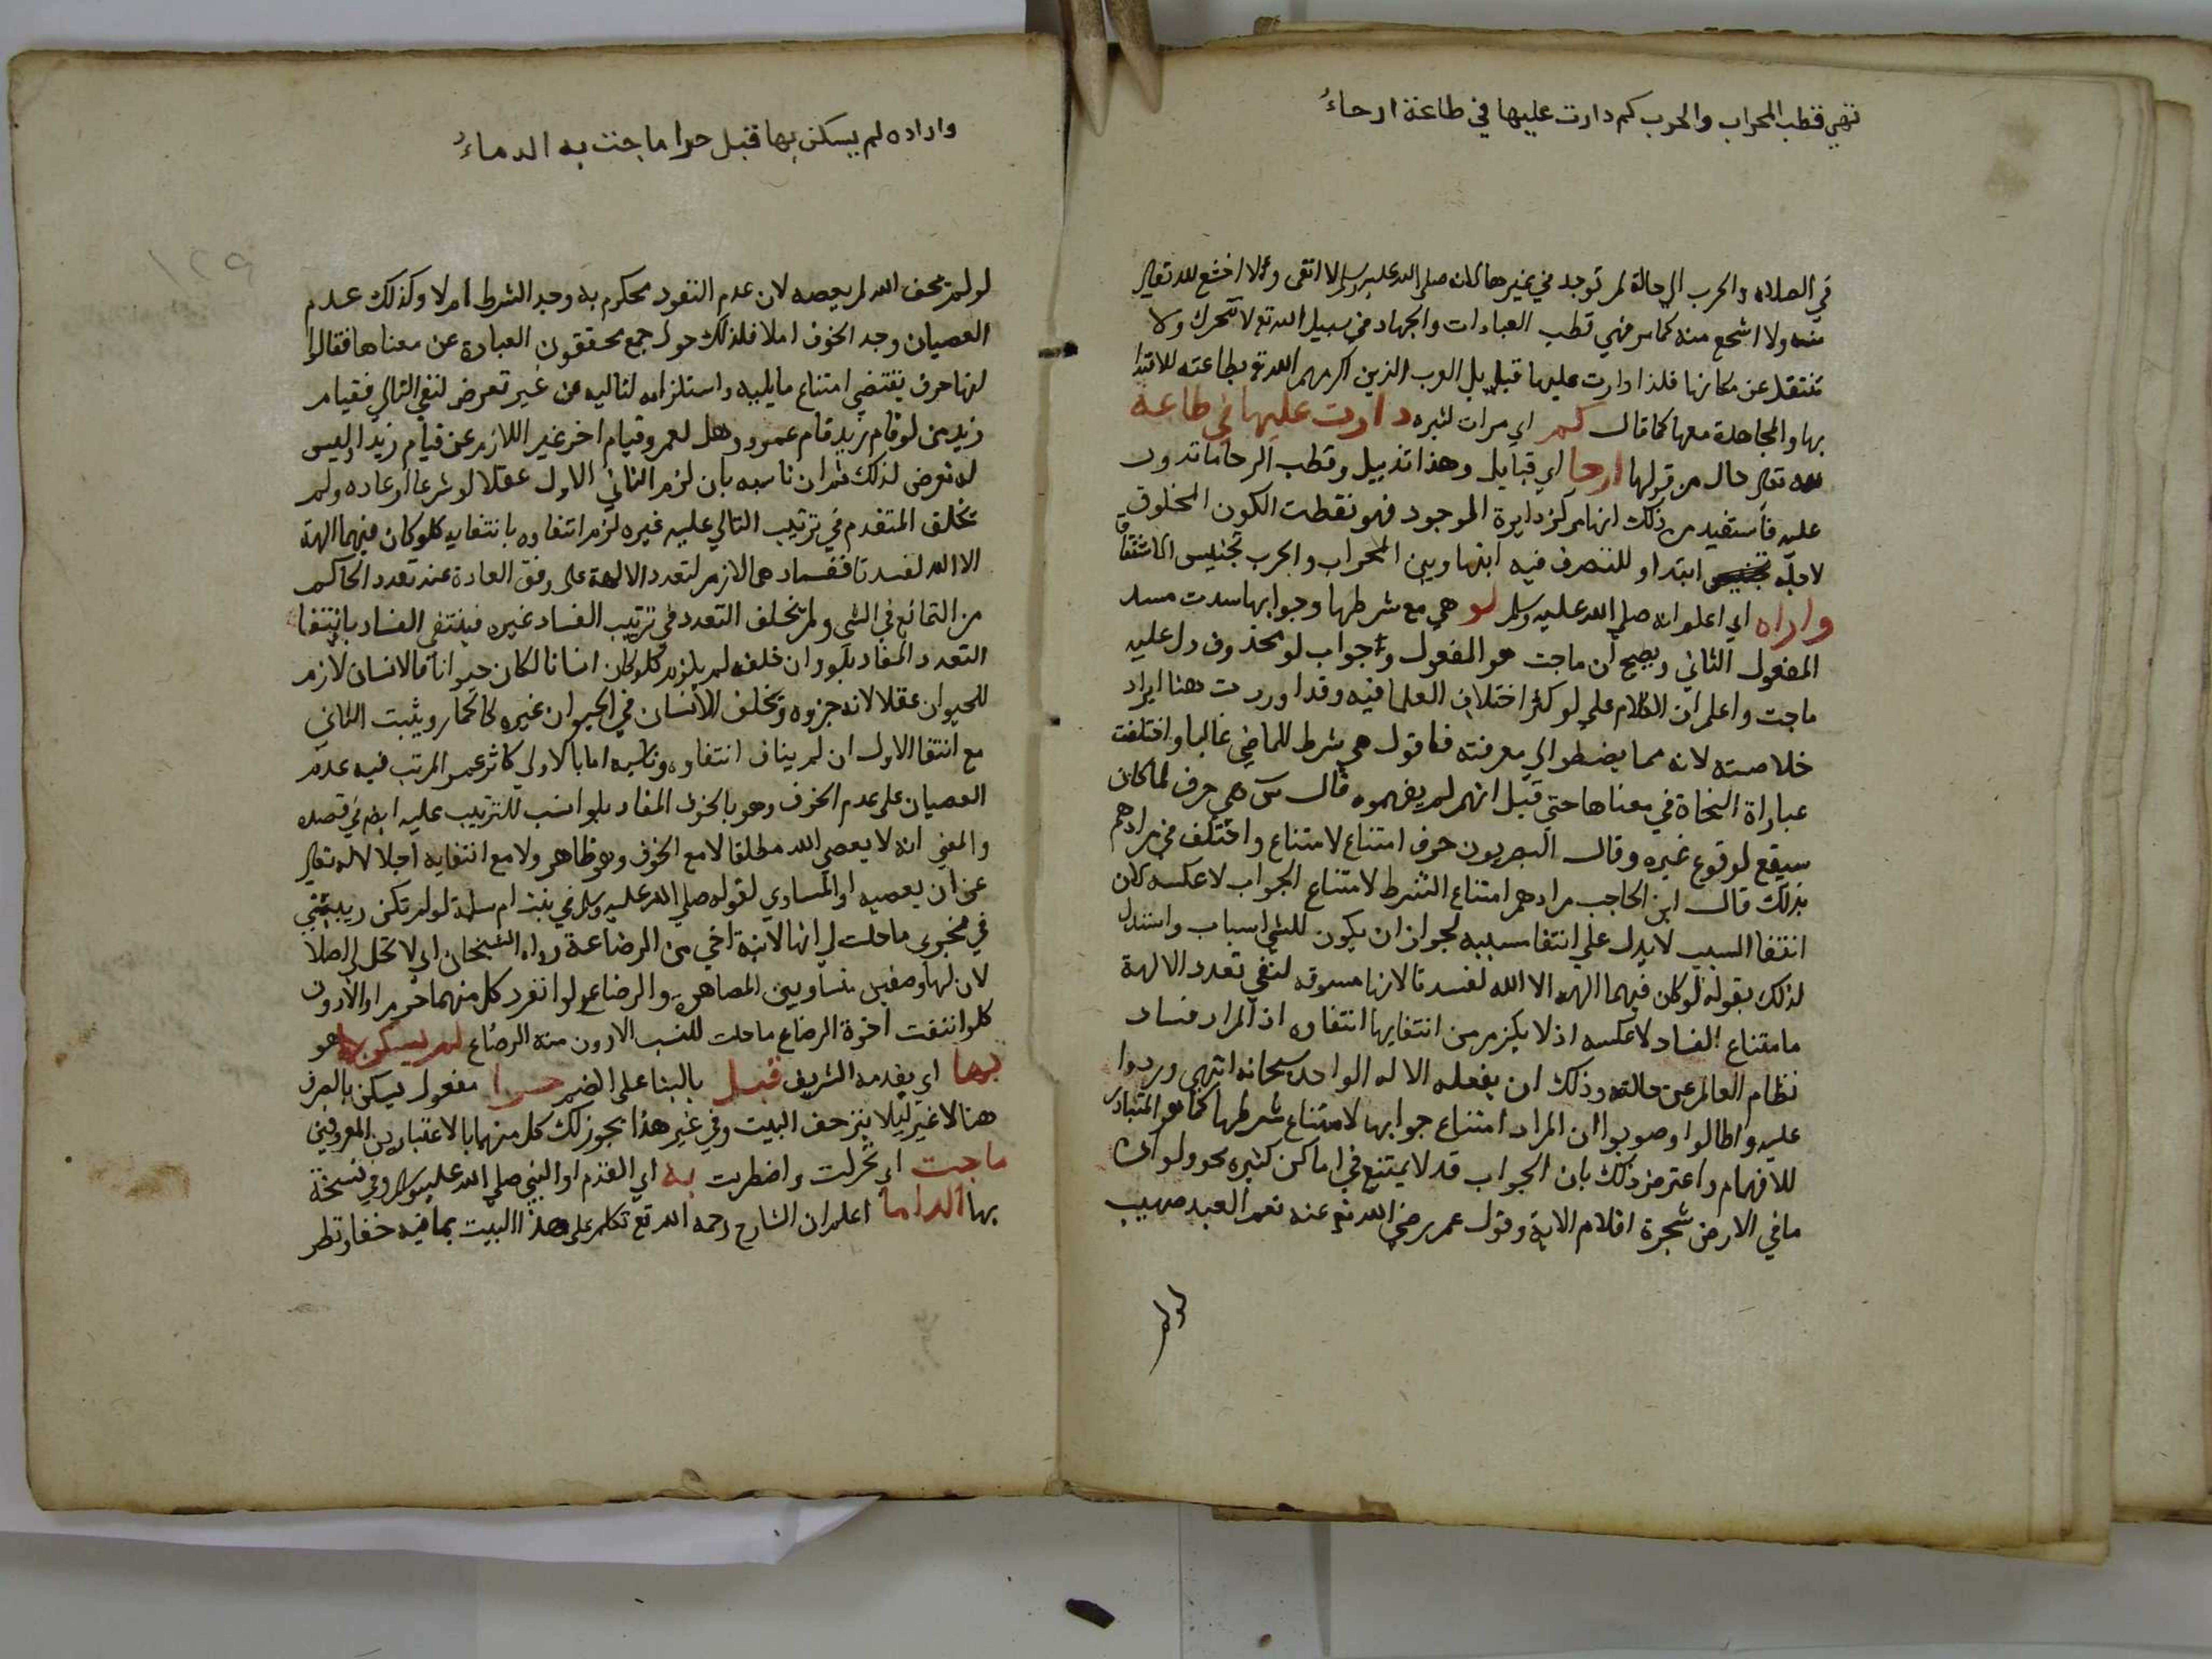 فهي قطب المحراب والحرب كم دارت عليها في طاعة ارحاءُ
في الصلاة والحرب الي حالة لم توجد في غيرها لانه صلي الله عليه وسلم لا اتقى ولا اخشع لله تعالي
منه ولا اشجع منه كما مر فهي قطب العبادات والجهاد في سبيل الله تع لا تتحرك ولا
تنتقل عن مكانها فلذا دارت عليها قبايل العرب الذين اكرمهم الله تع بطاعته للاقتدا
بها والمجاهدة معها كما قال كم اي مرات كثيره دارت عليها في طاعة
لله تعالي حال من قولها ارحا اي قبايل وهذا تذييل وقطب الرحا ما تدور
عليه فاستفيد من ذلك انها مركز دايرة الموجود فهو نقطت الكون المخلوق
لاجله ابتدا و للتصرف فيه انتها وبين المحراب والحرب تجنيس الاشتقاق
واراه اي اعلم انه صلي الله عليه وسلم لو هي مع شرطها وجوابها سدت مسد
المفعول الثاني ويصح أن ماجت هو المفعول وجواب لو محذوف دل عليه
ماجت واعلم ان الكلام علي لو كثر اختلاف العلما فيه وقد اوردت هنا ايراد
خلاصته لانه مما يضطر الي معرفته فاقول هي شرط للماضي غالبا واختلفت
عباراة النحاة في معناها حتي قيل انهم لم يفهموه قال س هي حرف لما كان
سيقع لوقوع غيره وقال البصريون حرف امتناع لامتناع واختلف في مرادهم
بذلك قال ابن الحاجب مرادهم امتناع الشرط لامتناع الجواب لا عكسه لان
انتفا السبب لا يدل علي انتفا مسببه لجواز ان يكون للشي اسباب واستدل
لذلك بقوله لو كان فيهما الهة الا الله لفسدتا لانها مسوقه لنفي تعدد الالهة
بامتناع الفساد لا عكسه اذ لا يلزم من انتفايها انتفاوه اذ المراد فساد
نظام العالم عن حالته وذلك ان يفعله الاله الواحد سبحانه انتهي وردوا
عليه واطالوا وصوبوا ان المراد امتناع جوابها لامتناع شرطها كما هو المتبادر
للافهام واعترض ذلك بان الجواب قد لا يمتنع في اماكن كثيره نحو ولو ان
ما في الارض شجرة اقلام الاية وقول عمر رضي الله تع عنه نعم العبد صهيب
لو لم
واراده لم يسكن بها قبل حرا ماجت به الدماءُ
١٢٩
لو لم يخف الله لم يعصه لان عدم النفود محكوم به وجد الشرط ام لا وكذلك عدم
العصيان وجد الخوف ام لا فلذلك حول جمع محققون العبارة عن معناها فقالوا
انها حرف يقتضي امتناع ما يليه واستلزامه لتاليه من غير تعرض لنفي التالي فقيام
زيد من لو قام زيد قام عمرو وهل لعمرو قيام اخر غير اللازم عن قيام زيد او ليس
له تعرض لذلك ثم ان ناسبه بان لزم الثاني الاول عقلا او شرعا او عاده ولم
تخلف المتقدم في ترتيب التالي عليه غيره لزم انتفاوه بانتفايه كلو كان فيهما الهة
الا الله لفسدتا ففسادهما لازم لتعدد الالهة على وفق العادة عند تعدد الحاكم
من التمانع في الشي ولم يخلف التعدد في ترتيب الفساد غيره فينتفي الفساد بانتفا
التعدد المفاد بلو وان خلفه لم يلزم كلو كان انسانا لكان حيوانا فالانسان لازم
للحيوان عقلا لانه جزوه ويخلف الانسان في الحيوان غيره كالحمار ويثبت الثاني
مع انتفا الاول ان لم يناف انتفاوه وناسبه اما بالاولي كاثر عمر المرتب فيه عدم
العصيان على عدم الخوف وهو بالخوف المفاد بلو انسب للترتيب عليه ايضا في قصده
والمعني انه لا يعصي الله مطلقا لا مع الخوف وهو ظاهر ولا مع انتفايه اجلالا له تعالي
عن ان يعصيه او المساوي لقوله صلي الله عليه وسلم في بنت ام سلمة لو لم تكن ربيبتي
في حجري ما حلت لي انها لابنة اخي من الرضاعة رواه الشيخان اي لا تحل لي اصلا
لان لها وصفين متساويين المصاهرة والرضاع لو انفرد كل منهما حرم او الادون
كلو انتفت اخوة الرضاع ما حلت للنسب الادون منه الرضاع لم يسكن هو
بها اي بقدمه الشريف قبل بالبنا على الضم حرا مفعول يسكن بالصرف
هنا لا غير ليلا ينزحف البيت وفي غير هذا يجوز لك كل منهما بالاعتبارين المعروفين
ماجت اي تحركت واضطربت به اي القدم او النبي صلي الله عليه وسلم وفي نسخة
بها الداما اعلم ان الشارح رحمه الله تع تكلم على هذا البيت بما فيه خفا ونظر